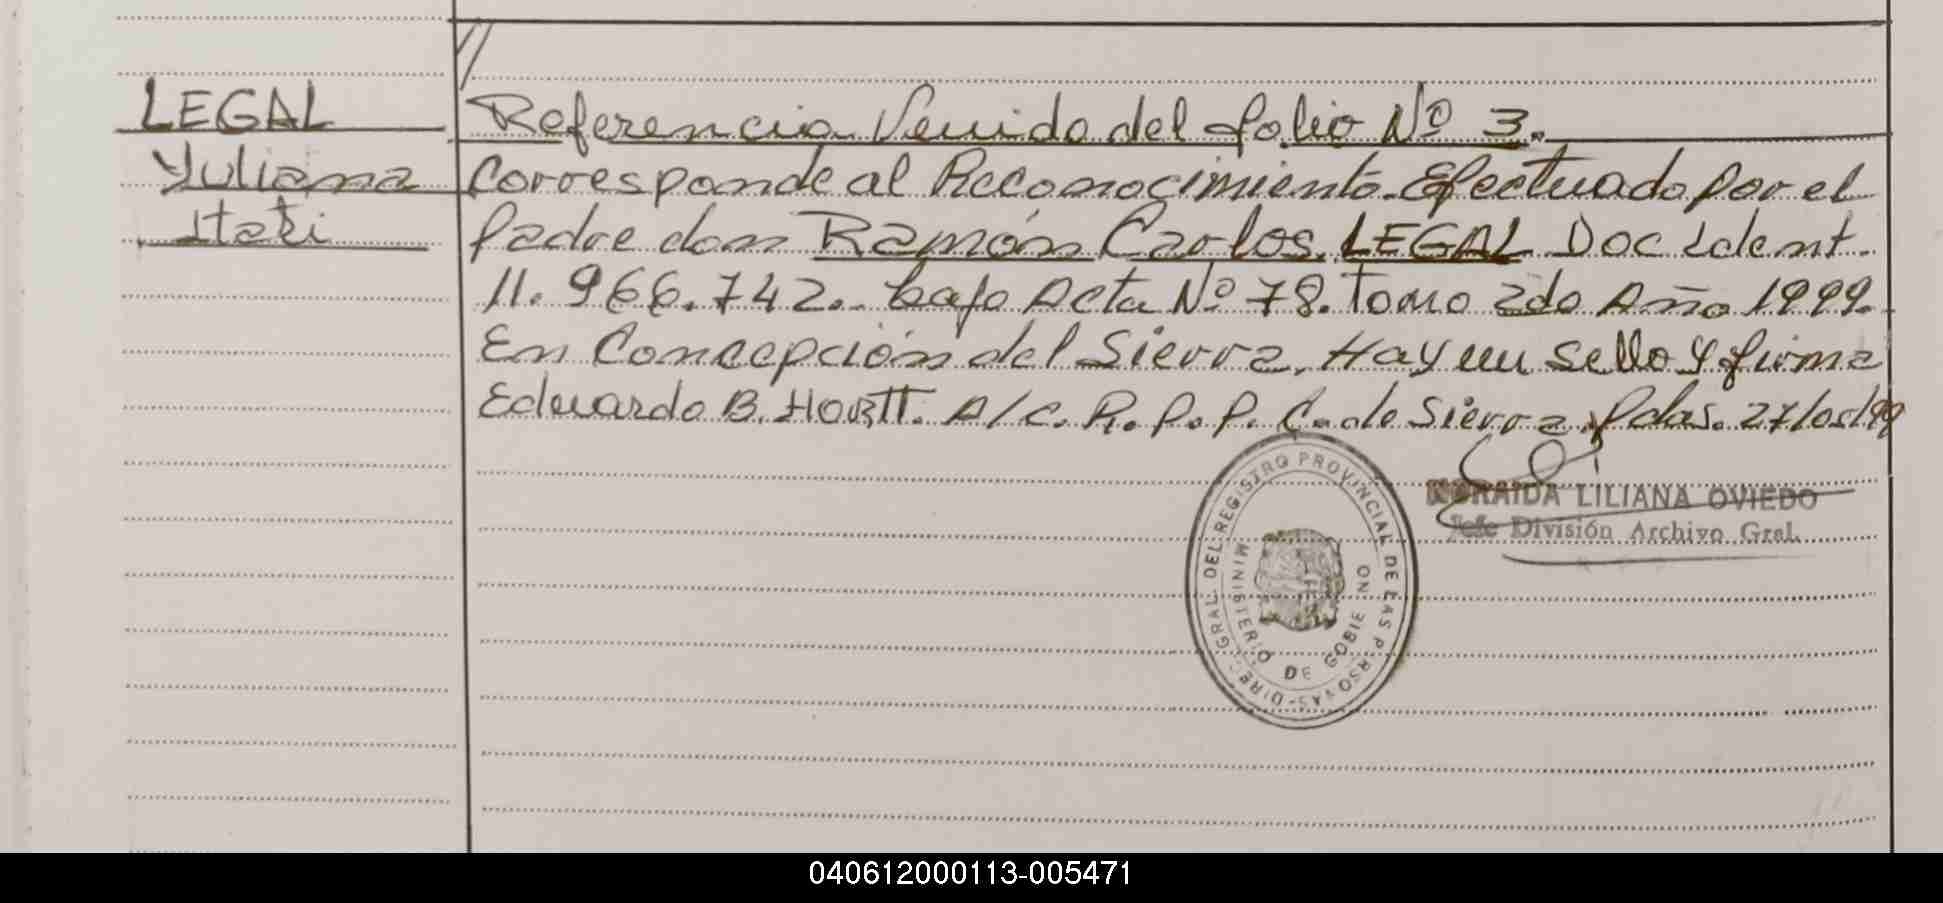 LEGAL
Yuliana
Itatí
//
Referencia Venida del folio Nº 3.
Corresponde al Reconocimiento Efectuado por el
padre don Ramón Carlos LEGAL Doc Ident.
11.966.742.- bajo Acta Nº 78. Tomo 2do Año 1999.
En Concepción del Sierra. Hay un sello y firma
Eduardo B. A/C. R.P.P. C. de Sierra. Pdas. 27/05/99
LILIANA OVIEDO
Jefe División Archivo Gral.
DIREC. GRAL. DEL REGISTRO PROVINCIAL DE LAS P RSONAS
MINISTERIO DE GOBIE NO
040612000113-005471